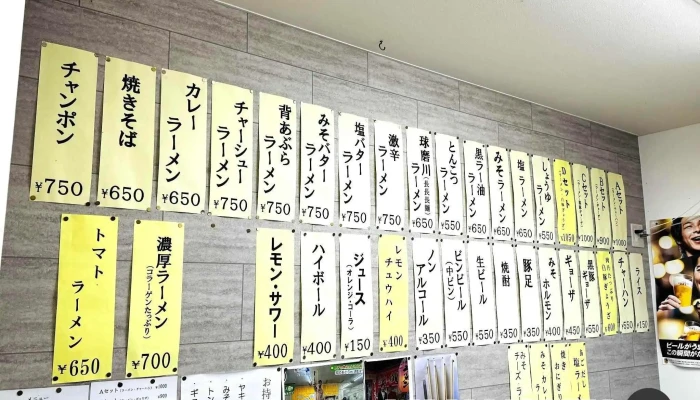 チャンポン
¥750
焼きそば
¥650
カレー
ラーメン
¥650
チャーシュー
ラーメン
¥750
背あぶら
ラーメン
¥750
みそバター
ラーメン
¥750
塩バター
ラーメン
¥750
激辛
ラーメン
¥750
球磨川
ラーメン
¥650
とんこつ
ラーメン
¥550
黒ラー油
ラーメン
¥650
みそラーメン
¥650
塩ラーメン
¥550
しょうゆ
ラーメン
¥550
Dセット
¥1050
Cセット
¥1000
Bセット
¥900
Aセット
¥1000
トマト
ラーメン
¥650
濃厚ラーメン
(コラーゲンたっぷり)
¥700
レモン・サワー
¥400
ハイボール
¥400
ジュース
(オレンジ・コーラ)
¥150
レモン
チュウハイ
¥400
ノン
アルコール
¥350
ビンビール
(中ビン)
¥550
生ビール
¥550
焼酎
¥350
豚足
¥350
みそ
ホルモン
¥400
ギョーザ
¥450
黒豚
ギョーザ
¥550
チャーハン
¥550
ライス
¥150
メニュー
Aセット
お持
みそ
チーズラ
みそカレ
ラーメ
焼き
おにぎり
あごだし
塩ラー
ビールがうま
この瞬間が